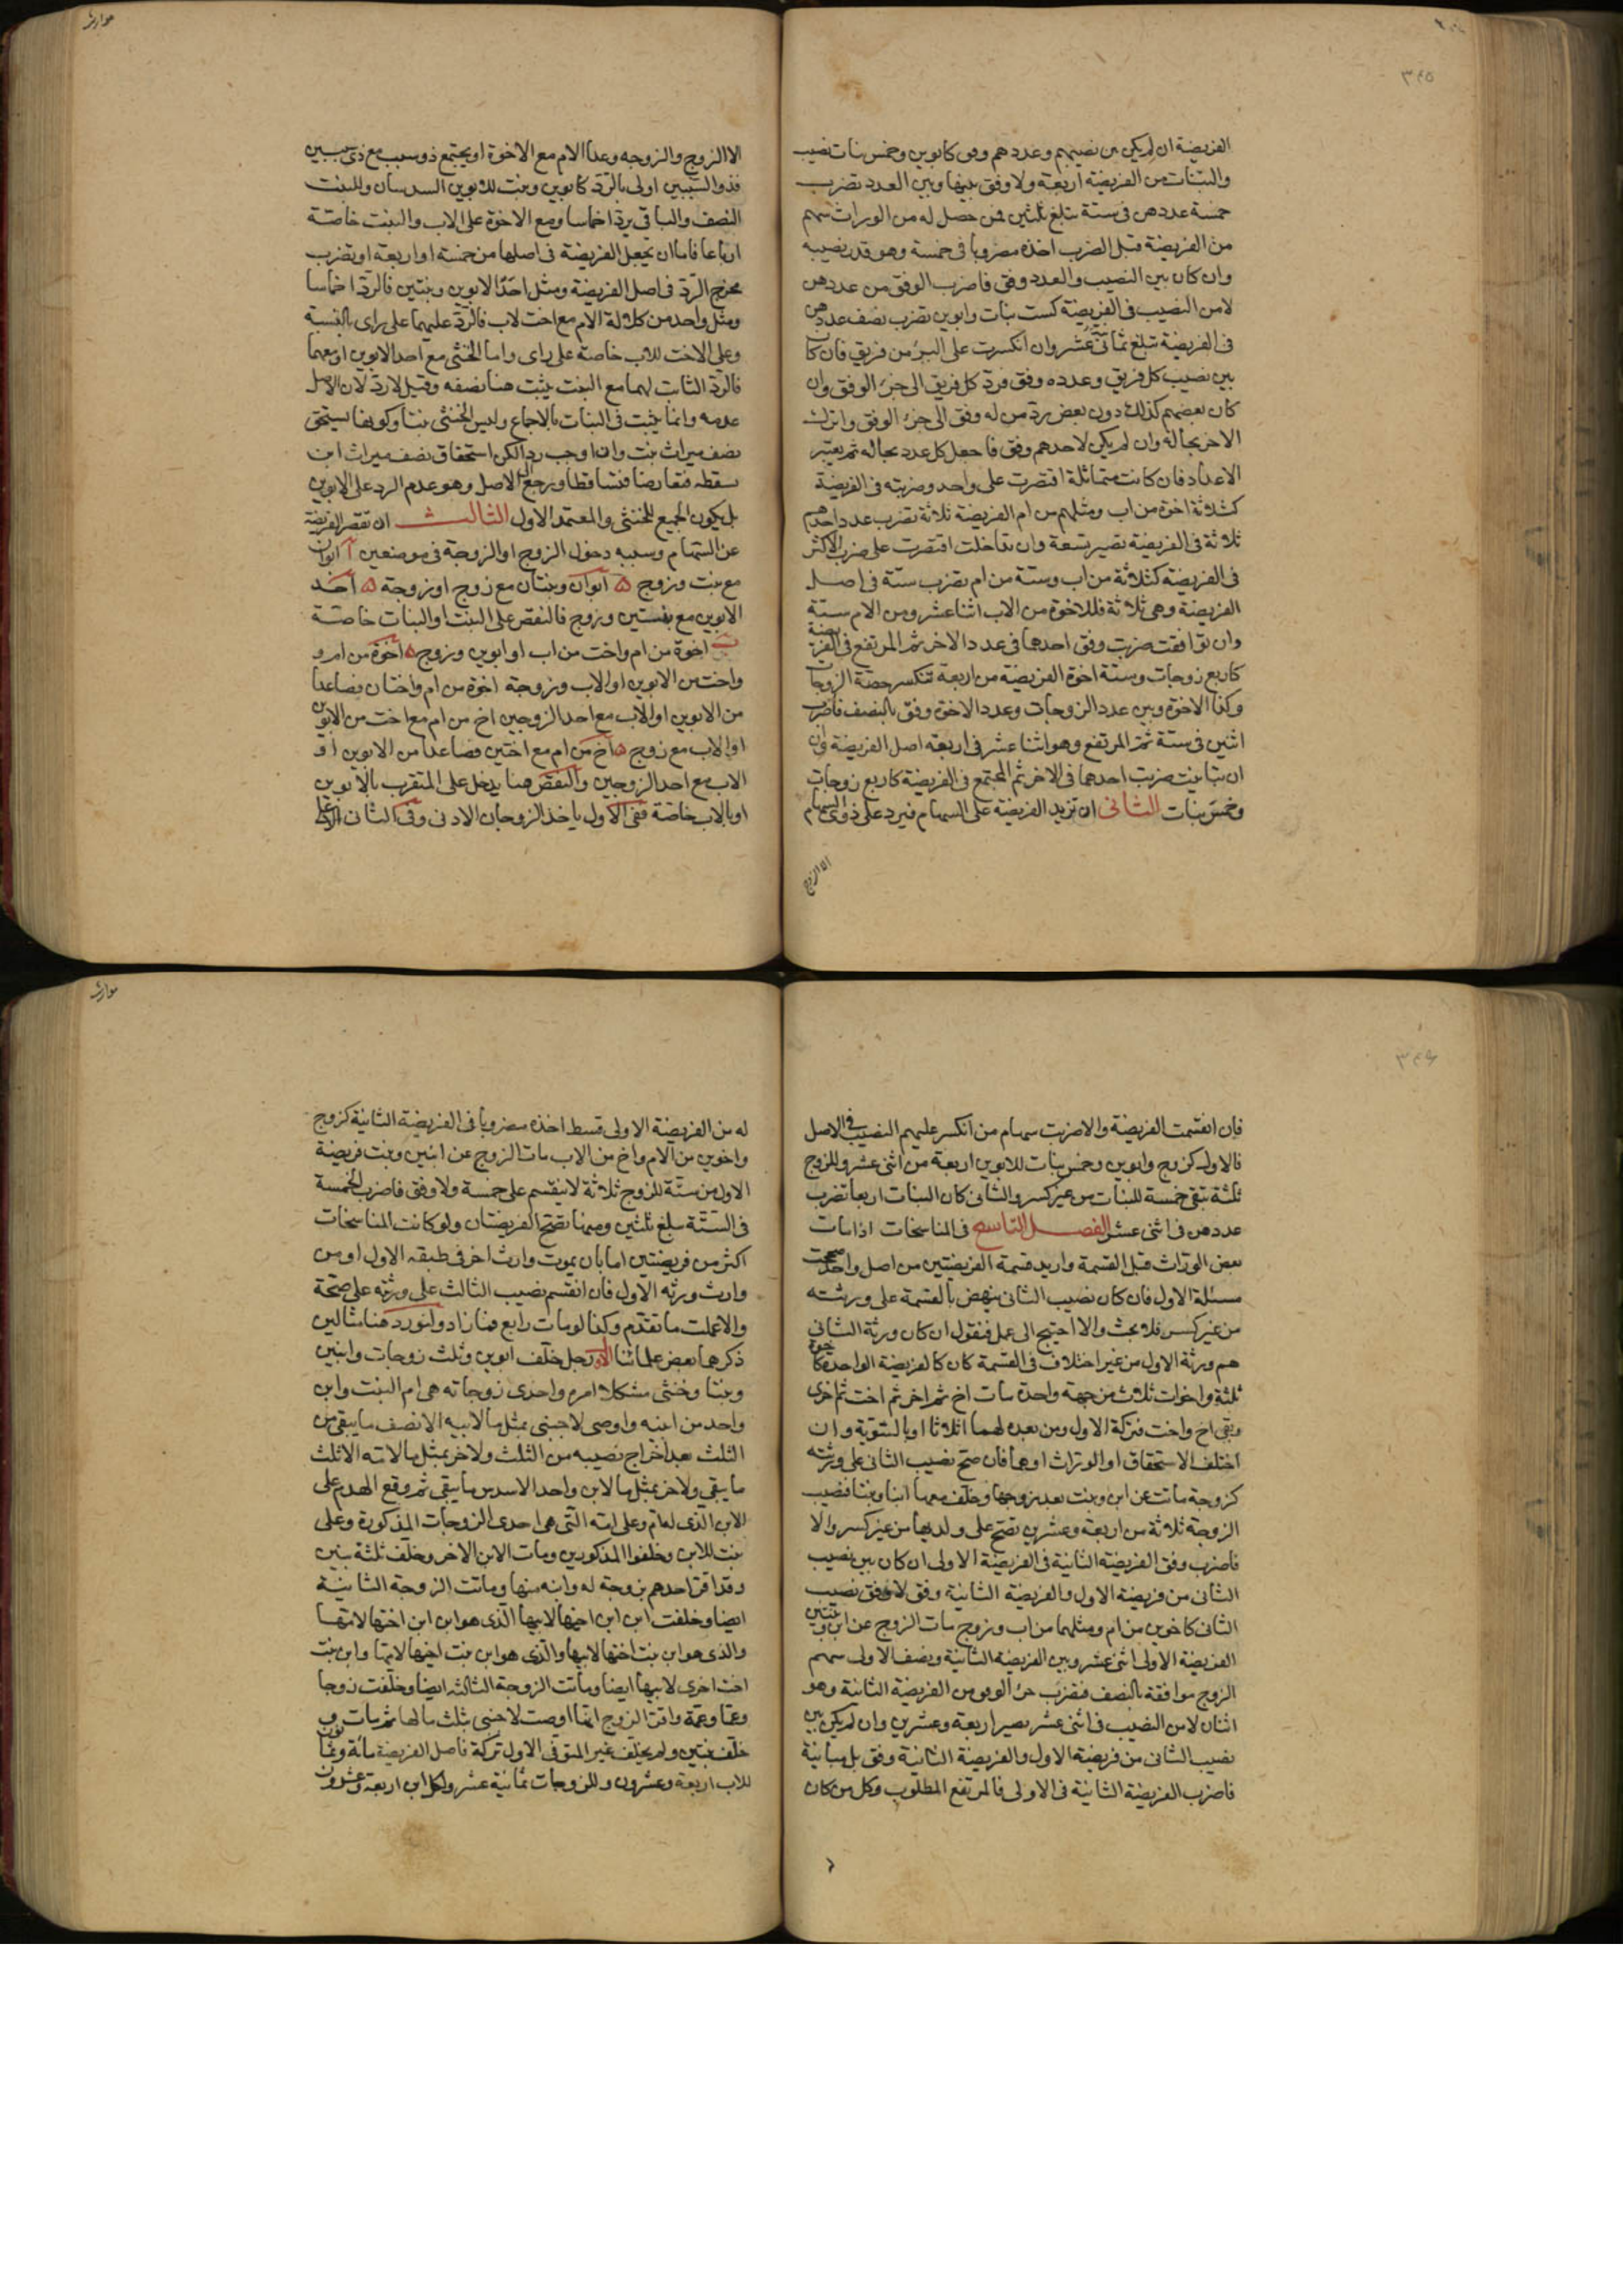 ٣٤٥
الفريضة ان لم يكن بين نصيبهم وعددهم وفق كابوين وخمس بنات نصيب
والبنات من الفريضة اربعة ولا وفق بينها وبين العدد تضرب
خمسة عددهن فى ستة تبلغ ثلثين فمن حصل له من الوراث سهم
من الفريضة قبل الضرب اخذه مضروبا فى خمسة وهو قدر نصيبه
وان كان بين النصيب والعدد وفق فاضرب الوفق من عددهن
لا من النصيب فى الفريضة كست بنات وابوين تضرب نصف عددهن
فى الفريضة تبلغ ثمانية عشر وان انكسرت على اكثر من فريق فان كان
بين نصيب كل فريق وعدده وفق فرد كل فريق الى جزء الوفق وان
كان بعضهم كذلك دون بعض رد من له وفق الى جزء الوفق واترك
الاخر بحاله وان لم يكن لاحدهم وفق فاجعل كل عدد بحاله ثم تعتبر
الاعداد فان كانت متماثلة اقتصرت على واحد وضربته فى الفريضة
كثلاثة اخوة من اب ومثلهم من ام الفريضة ثلاثة تضرب عدد احدهم
ثلاثة فى الفريضة تصير تسعة وان تداخلت اقتصرت على ضرب الاكثر
فى الفريضة كثلاثة من اب وستة من ام تضرب ستة فى اصل
الفريضة وهى ثلاثة فللاخوة من الاب اثنا عشر ومن الام ستة
وان توافقت ضربت وفق احدهما فى عدد الاخر ثم المرتفع فى الفريضة
كاربع زوجات وستة اخوة الفريضة من اربعة تنكسر حصة الزوجات
وكذا الاخوة وبين عدد الزوجات وعدد الاخوة وفق بالنصف فاضرب
اثنين فى ستة ثم المرتفع وهو اثنا عشر فى اربعة اصل الفريضة وان
ان تباينت ضربت احدهما فى الاخر ثم المجتمع فى الفريضة كاربع زوجات
وخمس بنات الثانى ان تزيد الفريضة على السهام فيرد على ذوى السهام
الا الزوج
موارث
الا الزوج والزوجه وعدا الام مع الاخوة او يجتمع ذو سبب مع ذى سببين
فذو السببين اولى بالرد كابوين وبنت للابوين السدسان وللبنت
النصف والباقى يرد اخماسا ومع الاخوة على الاب والبنت خاصة
ارباعا فاما ان تجعل الفريضة فى اصلها من خمسة او اربعة او تضرب
مخرج الرد فى اصل الفريضة ومثل احد الابوين وبنتين فالرد اخماسا
ومثل واحد من كلالة الام مع اخت لاب فالرد عليهما على راى بالنسبة
وعلى الاخت للاب خاصة على راى واما الخنثى مع احد الابوين او معهما
فالرد الثابت لهما مع البنت يثبت هنا نصفه وقيل لا رد لان الاصل
عدمه وانما يثبت فى البنات بالاجماع وليس الخنثى بنتا وكونها يستحق
نصف ميراث بنت وان اوجب ردا لكن استحقاق نصف ميراث ابن
يسقطه فتعارضا فتساقطا ورجع الاصل وهو عدم الرد على الابوين
بل يكون الجميع للخنثى والمعتمد الاول الثالث ان تقصر الفريضة
عن السهام وسببه دخول الزوج او الزوجة فى موضعين آ ابوان
مع بنت وزوج ه ابوان وبنتان مع زوج او زوجة ه احد
الابوين مع بنتين وزوج فالنقص على البنت او البنات خاصة
ب اخوة من ام واخت من اب او ابوين وزوج ه اخوة من ام و
واخت من الابوين او الاب وزوجة اخوة من ام واختان فصاعدا
من الابوين او الاب مع احد الزوجين اخ من ام مع اخت من الابوين
او الاب مع زوج ه اخ من ام مع اختين فصاعدا من الابوين او
الاب مع احد الزوجين والنقص هنا يدخل على المتقرب بالابوين
او بالاب خاصة ففى الاول ياخذ الزوجان الادنى وفى الثانى الاعلى
٣٤٦
فان انقسمت الفريضة والا ضربت سهام من انكسر عليهم النصيب فى الاصل
فالاول كزوج وابوين وخمس بنات للابوين اربعة من اثنى عشر وللزوج
ثلثة تبقى خمسة للبنات من غير كسر والثانى كان البنات اربعا تضرب
عددهن فى اثنى عشر الفصل التاسع فى المناسخات اذا مات
بعض الوراث قبل القسمة واريد قسمة الفريضتين من اصل واحد صححت
مسئلة الاول فان كان نصيب الثانى ينهض بالقسمة على ورثته
من غير كسر فلا بحث والا احتيج الى عمل فنقول ان كان ورثة الثانى
هم ورثة الاول من غير اختلاف فى القسمة كان كالفريضة الواحدة كاخوة
ثلثة واخوات ثلاث من جهة واحدة مات اخ ثم اخر ثم اخت ثم اخرى
وبقى اخ واخت فتركة الاول ومن بعده لهما اثلاثا او بالسوية وان
اختلف الاستحقاق او الوراث او هما فان صح نصيب الثانى على ورثته
كزوجة ماتت عن ابن وبنت بعد زوجها وخلف معهما ابنا وبنتا فنصيب
الزوجة ثلاثة من اربعة وعشرين تصح على ولديها من غير كسر والا
فاضرب وفق الفريضة الثانية فى الفريضة الاولى ان كان بين نصيب
الثانى من فريضة الاول والفريضة الثانية وفق لا وفق نصيب
الثانى كاخوين من ام ومثلهما من اب وزوج مات الزوج عن ابن وبنتين
الفريضة الاولى اثنى عشر وبين الفريضة الثانية ونصف الاولى سهم
الزوج موافقة بالنصف فتضرب جزء الوفق من الفريضة الثانية وهو
اثنان لا من النصيب فى اثنى عشر تصير اربعة وعشرين وان لم يكن بين
نصيب الثانى من فريضة الاول والفريضة الثانية وفق بل مباينة
فاضرب الفريضة الثانية فى الاولى فالمرتفع المطلوب وكل من كان
موارث
له من الفريضة الاولى قسط اخذه مضروبا فى الفريضة الثانية كزوج
واخوين من الام واخ من الاب مات الزوج عن ابنين وبنت فريضة
الاول من ستة للزوج ثلاثة لا ينقسم على خمسة ولا وفق فاضرب الخمسة
فى الستة تبلغ ثلثين ومنها تصح الفريضتان ولو كانت المناسخات
اكثر من فريضتين اما بان يموت وارث اخر فى طبقه الاول او من
وارث ورثه الاول فان انقسم نصيب الثالث على ورثته على صحة
والا عملت ما تقدم وكذا لو مات رابع فما زاد ولنورد هنا مثالين
ذكرهما بعض علمائنا الاول رجل خلف ابوين وثلث زوجات وابنين
وبنتا وخنثى مشكلا امره واحدى زوجاته هى ام البنت وابن
واحد من ابنيه واوصى لاجنبى بمثل ما لابيه الا نصف ما يبقى من
الثلث بعد اخراج نصيبه من الثلث ولاخر بمثل ما لامه الا ثلث
ما يبقى ولاخر بمثل ما لابن واحد الا سدس ما يبقى ثم وقع الهدم على
الابن الذى له ام وعلى امه التى هى احدى الزوجات المذكورة وعلى
بنت للابن وخلفوا المذكورين ومات الابن الاخر وخلف ثلثة بنين
وقد اقر احدهم بزوجة له وابنه منها وماتت الزوجة الثانية
ايضا وخلفت ابن ابن اخيها لابيها الذى هو ابن ابن اختها لامها
والذى هو ابن بنت اختها لابيها والذى هو ابن بنت اخيها لامها وابن بنت
اخت اخرى لابيها ايضا وماتت الزوجة الثالثه ايضا وخلفت زوجا
وعما وعمة واقر الزوج انها اوصت لاجنبى بثلث مالها ثم مات و
خلف بنتين ولم يخلف غير المتوفى الاول تركة فاصل الفريضة مائة وثمانون
للاب اربعة وعشرون وللزوجات ثمانية عشر ولكل ابن اربعة وعشرون